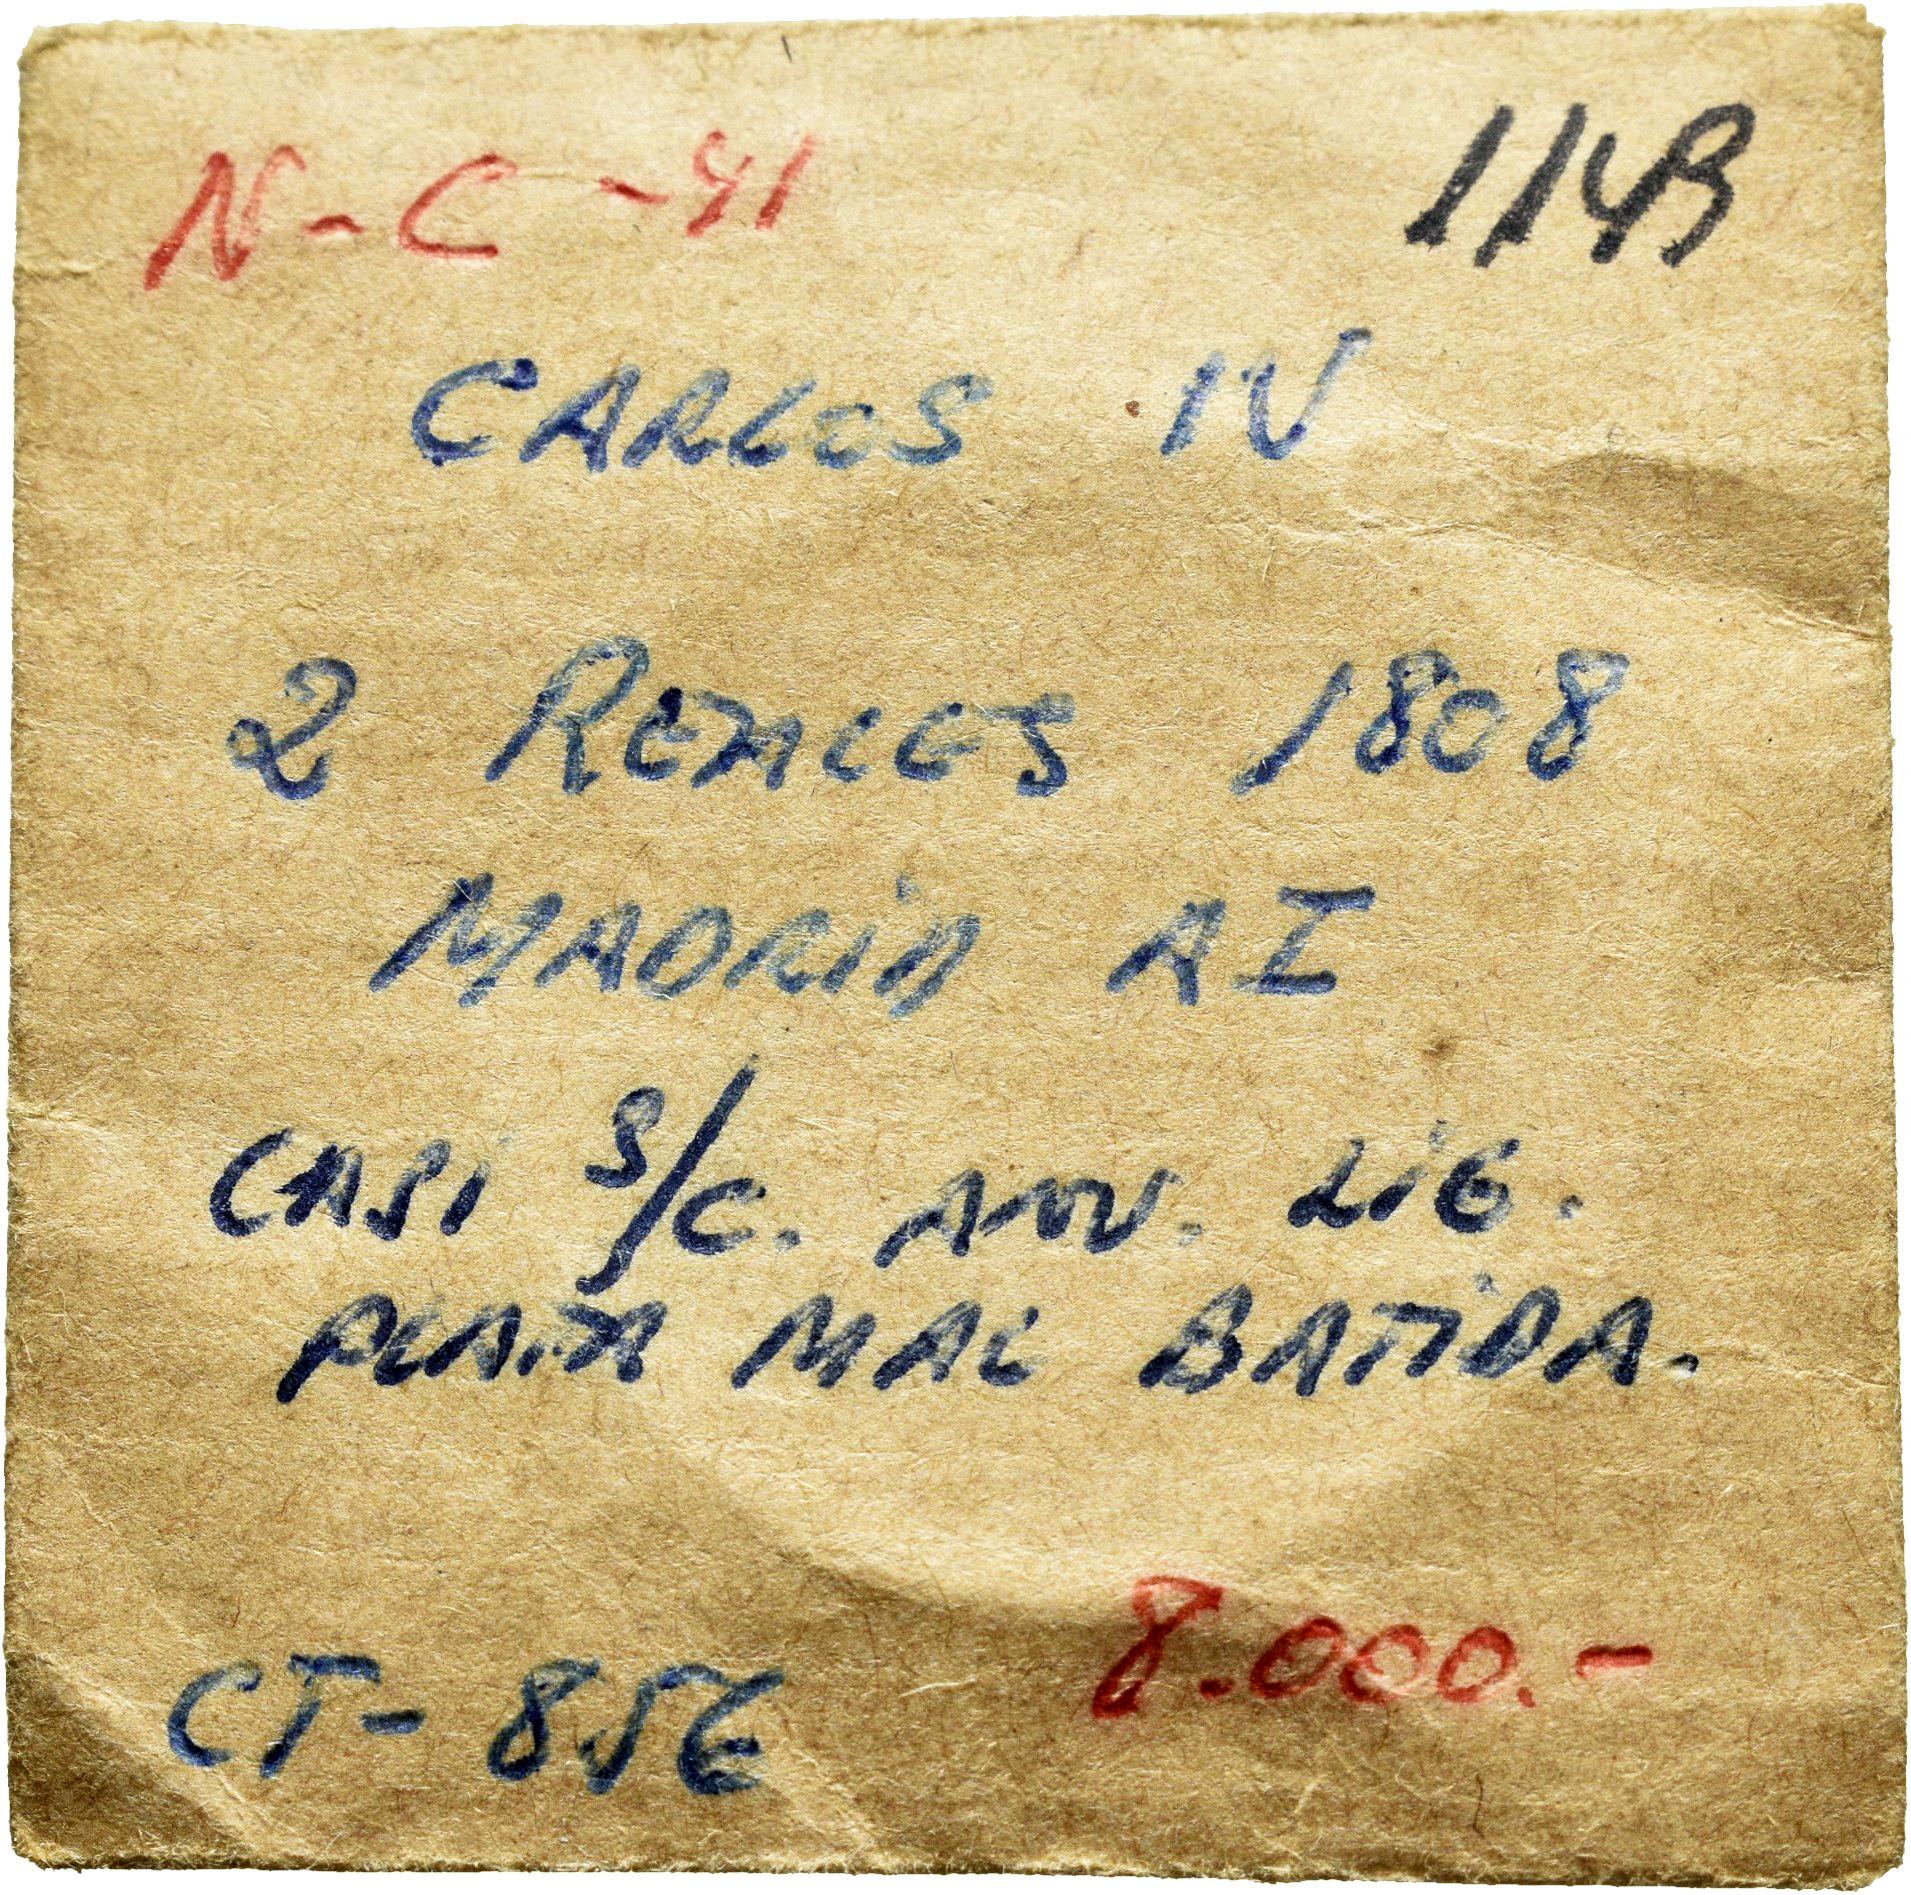 N-C-91 1143
CARLOS IV
2 REALES 1808
MADRID AI
CASI S/C. ANV. LIG.
PLATA MAL BATIDA.
8.000.-
CT-856